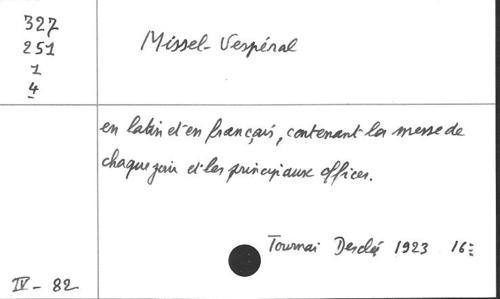 327
251
1
4
Missel-Vespéral
en latin et en français, contenant la messe de
chaque jour et les principaux offices.
Tournai Desclée 1923 16=
IV - 82